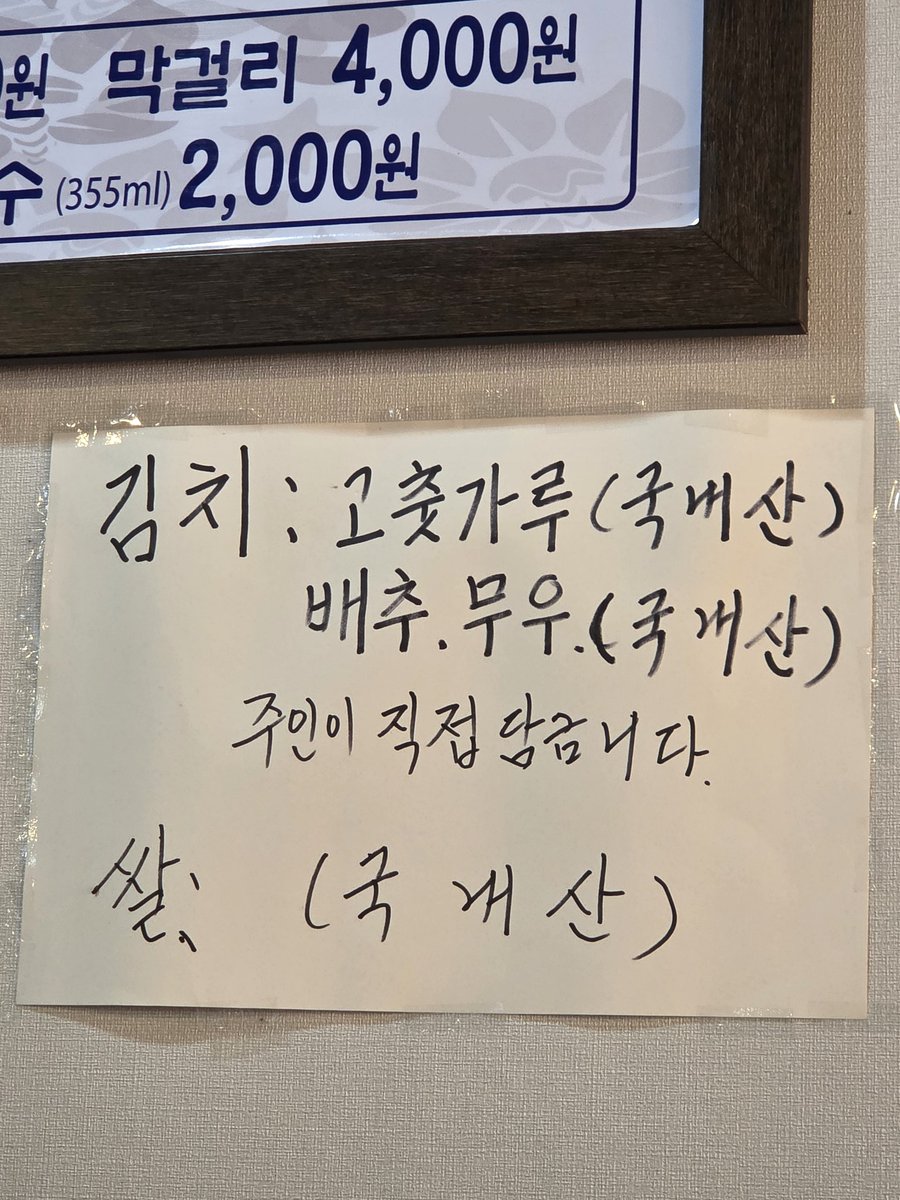 원 막걸리 4,000원
수 (355ml) 2,000원
김치 : 고춧가루 (국내산)
배추. 무우. (국내산)
주인이 직접 담금니다.
쌀; (국내산)